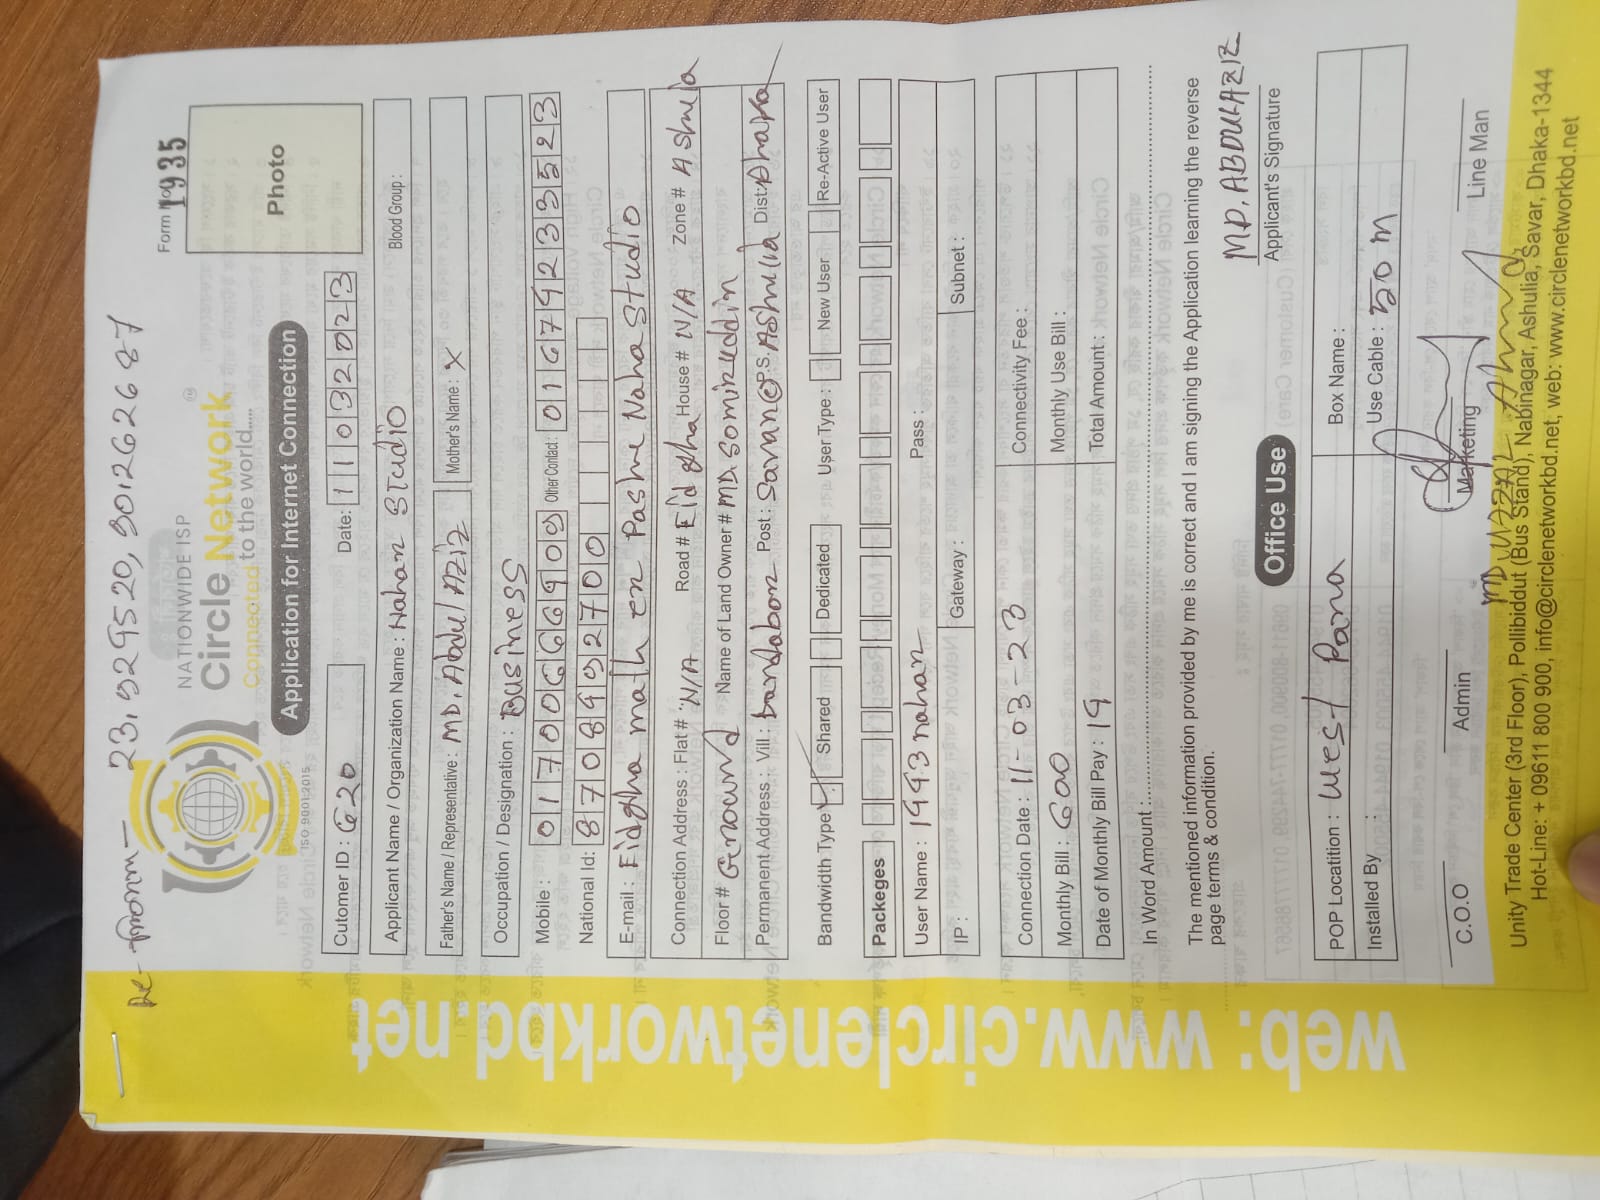 Re-
NATIONWIDE ISP
Circle Network
Connected to the world.....
ISO 9001:2015
Form No
1935
Photo
Application for Internet Connection
Cutomer ID : 620 Date: 11032023
Applicant Name / Organization Name : Nahan Studio Blood Group :
Father's Name / Representative : MD. Abdul Aziz Mother's Name : X
Occupation / Designation : Business
Mobile : Other Contact : 01679233523
National Id:
E-mail : Eidgha math er Pashe Naha Studio
Connection Address : Flat # N/A Road # Eid gha House # N/A Zone # Ashula
Floor # Name of Land Owner # MD.
Permanent Address : Vill : Post : P.S. Dist: Dhaka
Bandwidth Type : Shared Dedicated User Type : New User Re-Active User
Packeges
User Name : 1993nahan Pass :
IP : Gateway : Subnet :
Connection Date : 11-03-23 Connectivity Fee :
Monthly Bill : 600 Monthly Use Bill :
Date of Monthly Bill Pay : 19 Total Amount :
In Word Amount :
The mentioned information provided by me is correct and I am signing the Application learning the reverse
page terms & condition.
MD. ABDUL AZIZ
Applicant's Signature
Office Use
POP Locatition : West Para Box Name :
Installed By : Use Cable :
C.O.O Admin Marketing Line Man
Unity Trade Center (3rd Floor), Pollibiddut (Bus Stand), Nabinagar, Ashulia, Savar, Dhaka-1344
Hot-Line: + 09611 800 900, info@circlenetworkbd.net, web: www.circlenetworkbd.net
web: www.circlenetworkbd.net